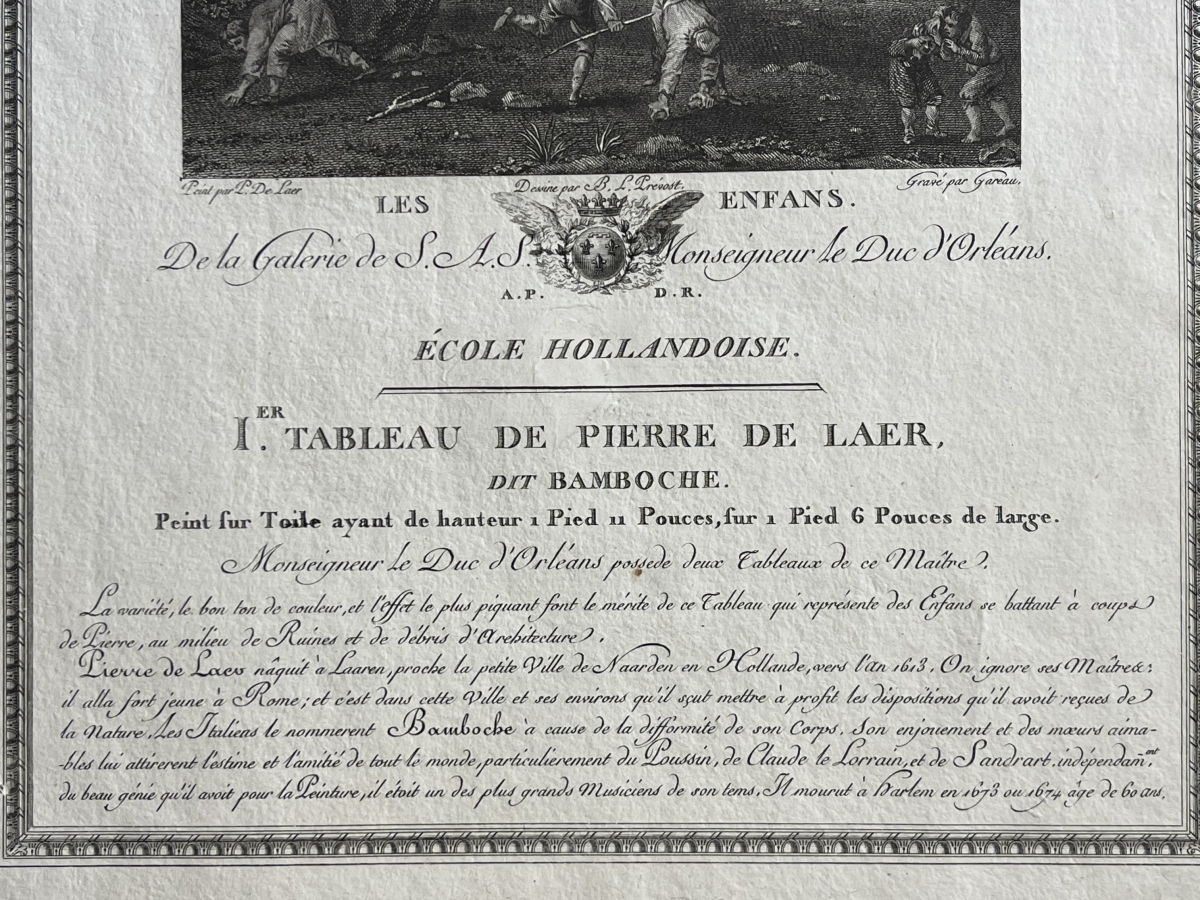 Peint par P. De Laer
Dessine par B. L. Prévost.
Gravé par Gareau.
LES ENFANS.
De la Galerie de S. A. S. Monseigneur le Duc d'Orléans.
A. P. D. R.
ÉCOLE HOLLANDOISE.
I.ER TABLEAU DE PIERRE DE LAER,
DIT BAMBOCHE.
Peint sur Toile ayant de hauteur 1 Pied 11 Pouces, sur 1 Pied 6 Pouces de large.
Monseigneur le Duc d'Orléans possede deux Tableaux de ce Maître.
La variété, le bon ton de couleur, et l'effet le plus piquant font le mérite de ce Tableau qui représente des Enfans se battant à coups
de Pierre, au milieu de Ruines et de débris d'Architecture.
Pierre de Laer nâquit à Laaren, proche la petite Ville de Naarden en Hollande, vers l'An 1613. On ignore ses Maîtres:
il alla fort jeune à Rome; et c'est dans cette Ville et ses environs qu'il sçut mettre à profit les dispositions qu'il avoit reçues de
la Nature. Les Italiens le nommerent Bamboche à cause de la difformité de son Corps. Son enjouement et des mœurs aima-
-bles lui attirerent l'estime et l'amitié de tout le monde, particulierement du Poussin, de Claude le Lorrain, et de Sandrart. indépendam.ent
du beau génie qu'il avoit pour la Peinture, il étoit un des plus grands Musiciens de son tems. Il mourut à Harlem en 1673 ou 1674 âge de 60 ans.